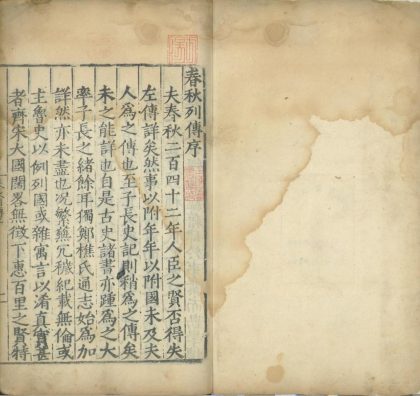 春秋列傳序
夫春秋二百四十二年人臣之賢否得失
左傳詳矣然事以附年年以附國未及夫
人為之傳也至子長史記則稍為之傳矣
未之能詳也自是古史諸書亦踵為之大
率子長之緒餘耳獨鄭樵氏通志始為加
詳然亦未盡也况繁蕪冗穢紀載無倫或
主魯史以例列國或雜寓言以淆真實甚
者齊宋大國闊畧無徵下惠百里之賢特